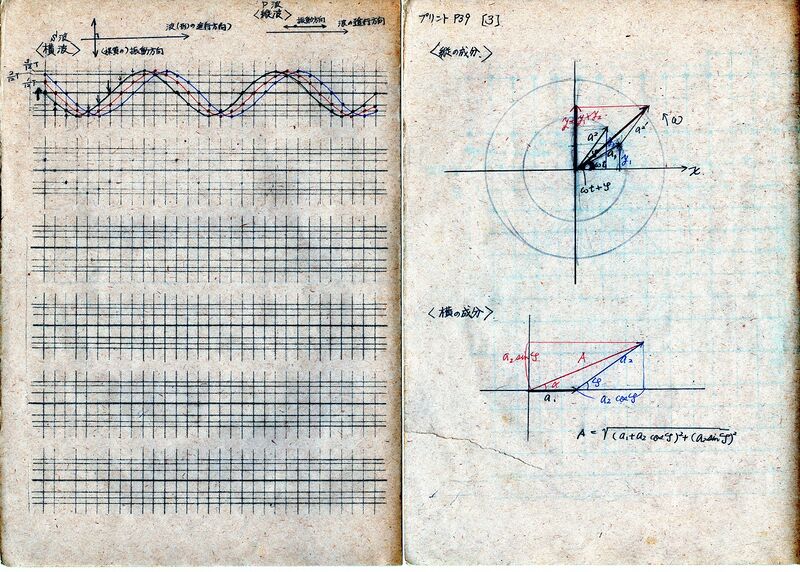 S波
〈横波〉
波(例)の進行方向
(媒質の)振動方向
P波
〈縦波〉
振動方向
波の進行方向
プリント P39 [3]
〈縦の成分〉
y=y₁+y₂
a²
a₁
y₁
ω
x
ωt+φ
〈横の成分〉
a₂ sinφ
A
a₂
α
φ
a₁
a₂ cosφ
A = √(a₁+a₂ cosφ)²+(a₂sinφ)²